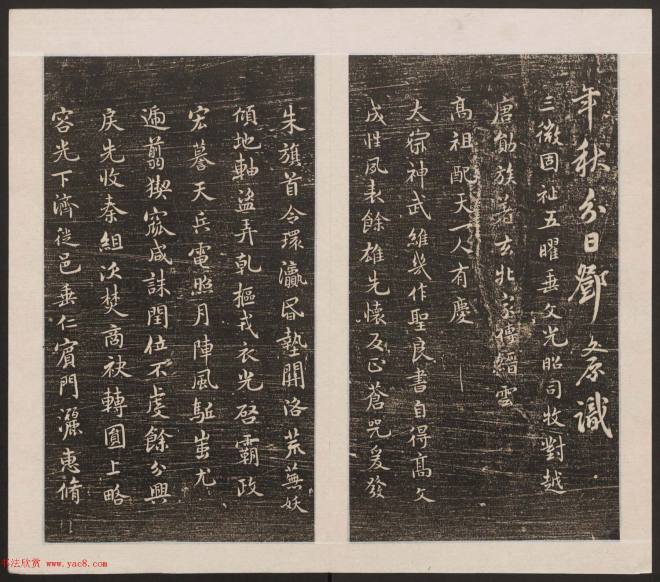 年秋分日鄧文原識
三微固祉五曜垂文光昭司牧對越
唐勛族著玄北家傳縉雲
高祖配天一人有慶
太宗神武維幾作聖良書自得高文
成性夙表餘雄先懷及正蒼兕爰發
朱旗首令環瀛昏墊開洛荒蕪妖
傾地軸盜弄乾樞戎衣光啓霸政
宏謩天兵電照月陣風駈蚩尤
遍翦猰㺄咸誅閏位不虔餘分興
戾先收秦組次焚商袂轉圓上略
容光下濟從邑垂仁賓門灑惠脩
书法欣赏 www.yac8.com